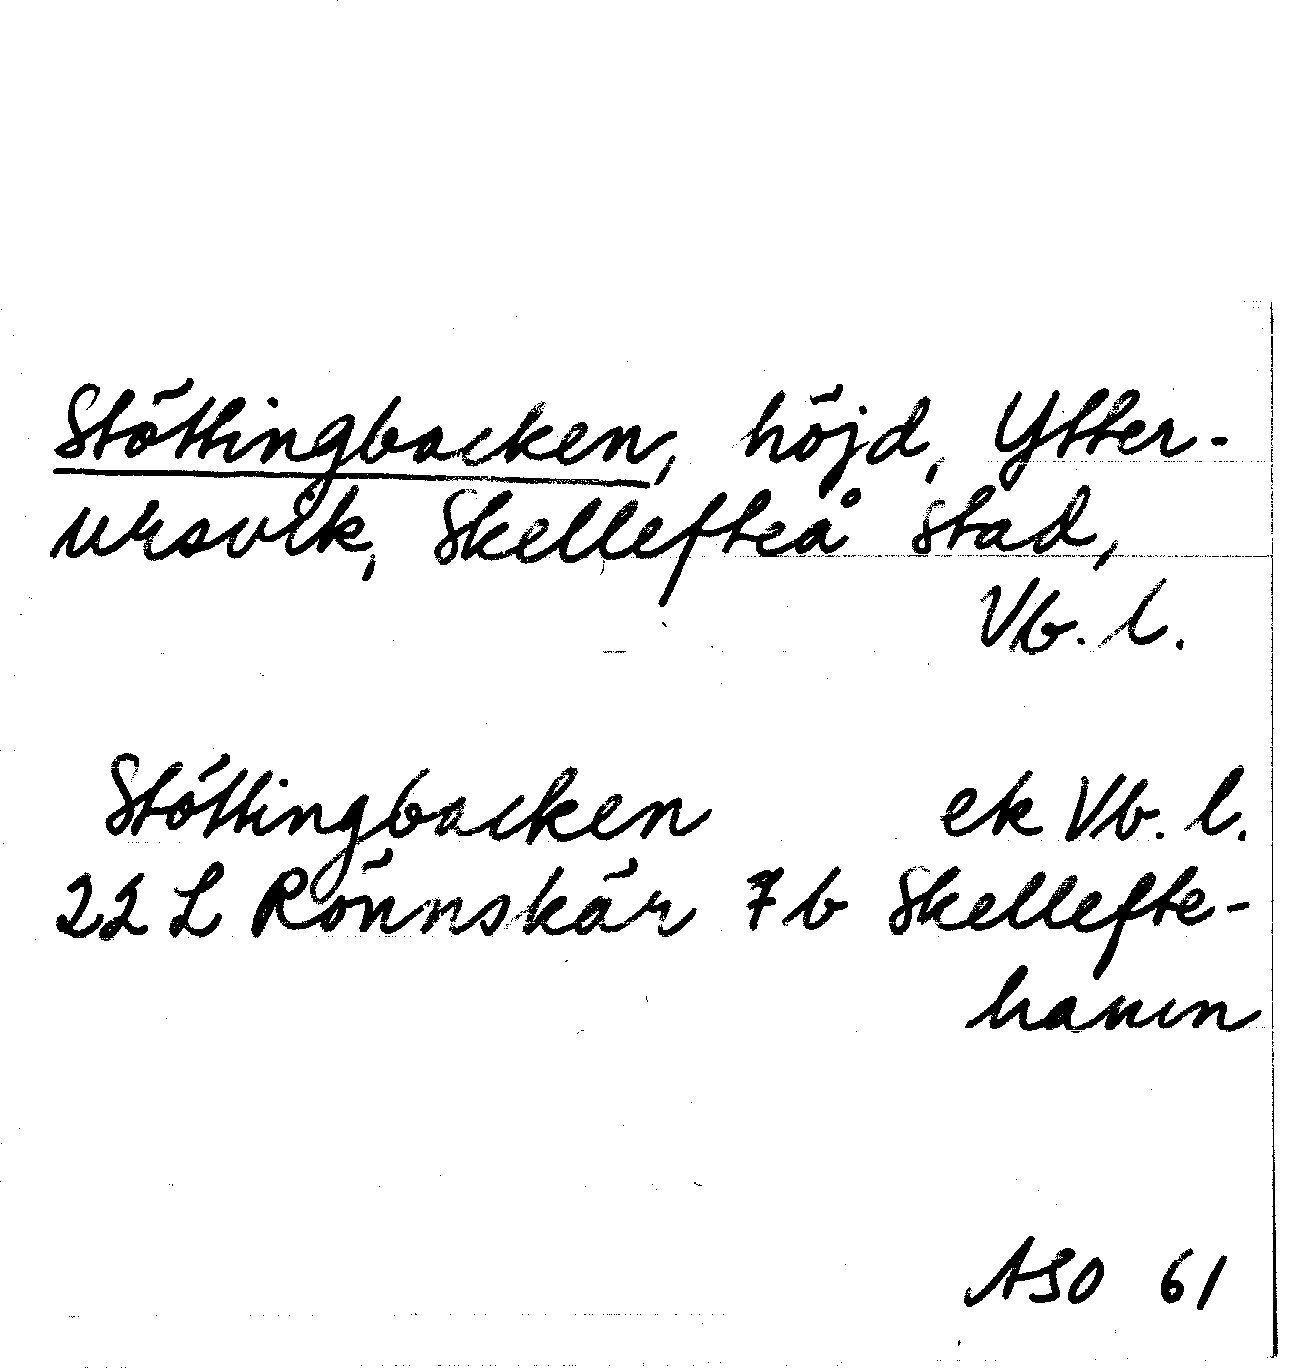 Stöttingbacken, höjd, Ytter-
ursvik, Skellefteå stad,
Vb. l.
Stöttingbacken ek Vb. l.
22 L Rönnskär 7 b Skellefte-
hamn
ASO 61